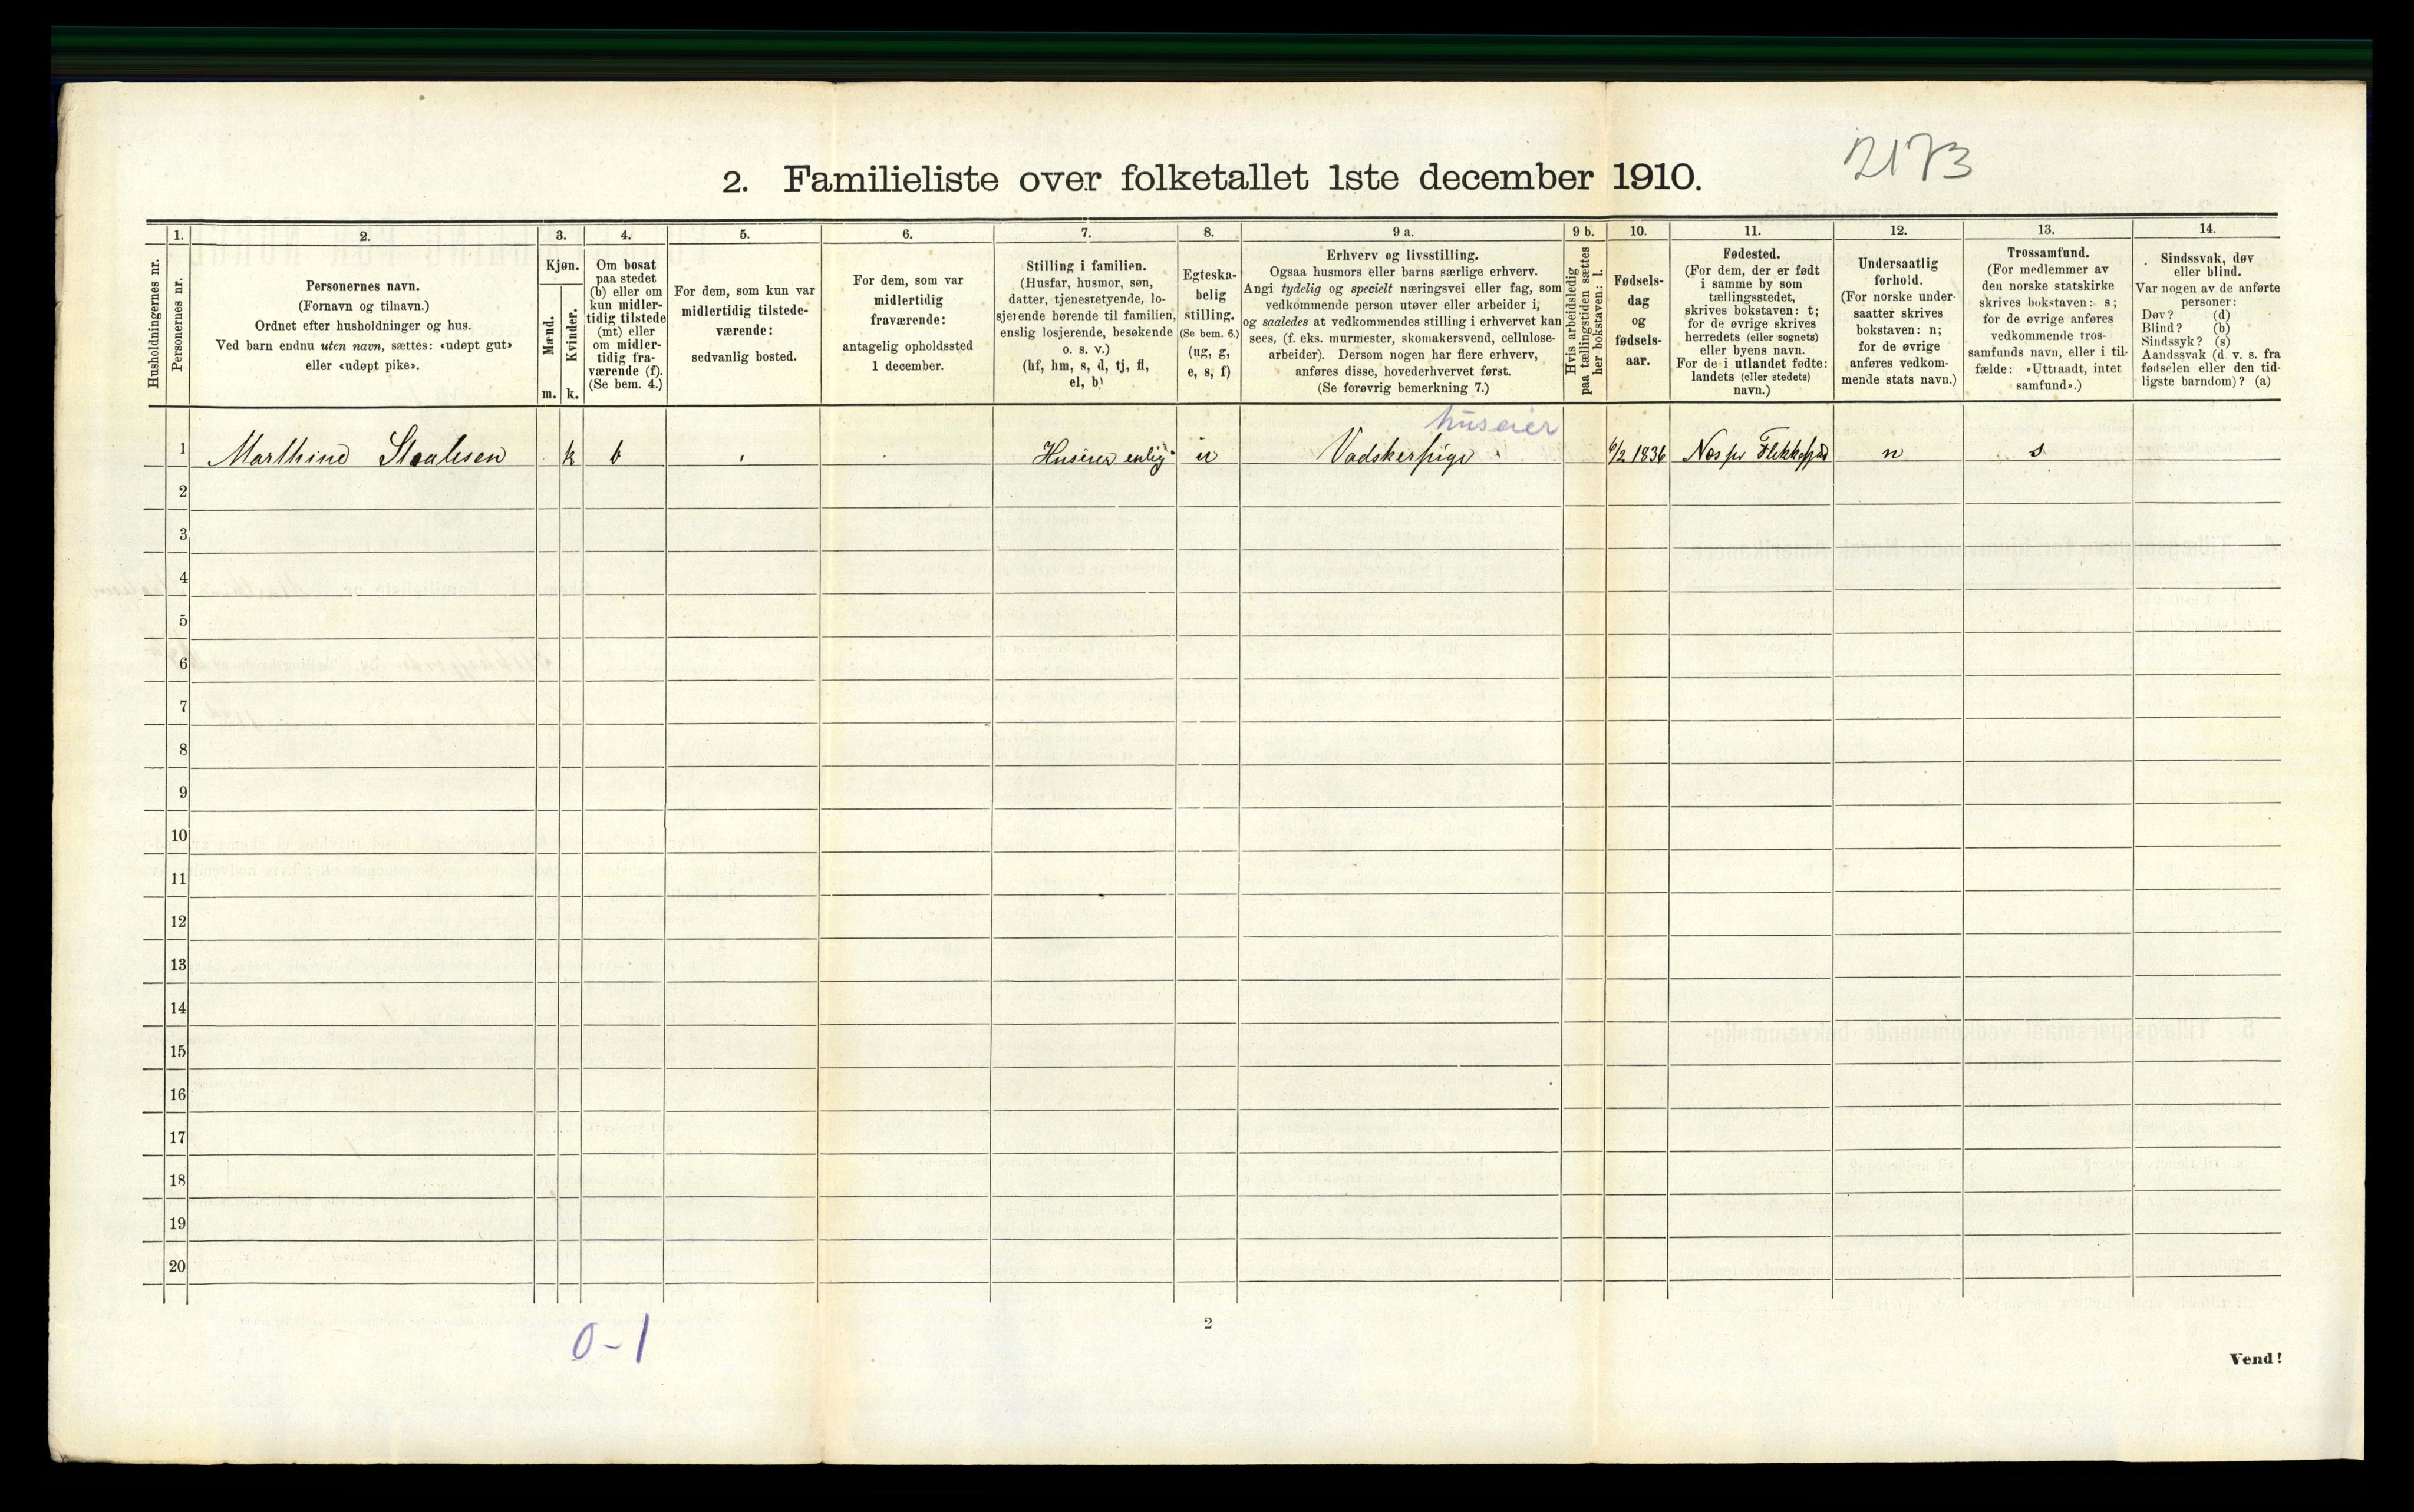 2173
2. Familieliste over folketallet 1ste december 1910.
Husholdningernes nr.
1.
Personernes nr.
2.
Personernes navn.
(Fornavn og tilnavn.)
Ordnet efter husholdninger og hus.
Ved barn endnu uten navn, sættes: «udøpt gut»
eller «udøpt pike».
3.
Kjøn.
Mænd.
Kvinder.
m.
k.
4.
Om bosat
paa stedet
(b) eller om
kun midler-
tidig tilstede
(mt) eller
om midler-
tidig fra-
værende (f).
(Se bem. 4.)
5.
For dem, som kun var
midlertidig tilstede-
værende:
sedvanlig bosted.
6.
For dem, som var
midlertidig
fraværende:
antagelig opholdssted
1 december.
7.
Stilling i familien.
(Husfar, husmor, søn,
datter, tjenestetyende, lo-
sjerende hørende til familien,
enslig losjerende, besøkende
o. s. v.)
(hf, hm, s, d, tj, fl,
el, b)
8.
Egteska-
belig
stilling.
(Se bem. 6.)
(ug, g,
e, s, f)
9 a.
Erhverv og livsstilling.
Ogsaa husmors eller barns særlige erhverv.
Angi tydelig og specielt næringsvei eller fag, som
vedkommende person utøver eller arbeider i,
og saaledes at vedkommendes stilling i erhvervet kan
sees, (f. eks. murmester, skomakersvend, cellulose-
arbeider). Dersom nogen har flere erhverv,
anføres disse, hovederhvervet først.
(Se forøvrig bemerkning 7.)
9 b.
Hvis arbeidsledig
paa tællingstiden sættes
her bokstaven: l.
10.
Fødsels-
dag
og
fødsels-
aar.
11.
Fødested.
(For dem, der er født
i samme by som
tællingsstedet,
skrives bokstaven: t;
for de øvrige skrives
herredets (eller sognets)
eller byens navn.
For de i utlandet fødte:
landets (eller stedets)
navn.)
12.
Undersaatlig
forhold.
(For norske under-
saatter skrives
bokstaven: n;
for de øvrige
anføres vedkom-
mende stats navn.)
13.
Trossamfund.
(For medlemmer av
den norske statskirke
skrives bokstaven: s;
for de øvrige anføres
vedkommende tros-
samfunds navn, eller i til-
fælde: «Uttraadt, intet
samfund».)
14.
Sindssvak, døv
eller blind.
Var nogen av de anførte
personer:
Døv? (d)
Blind? (b)
Sindssyk? (s)
Aandssvak (d. v. s. fra
fødselen eller den tid-
ligste barndom)? (a)
huseier
1 Marthine Staalesen k b Huseier enlig u Vadskerpige 6/2 1836 Nes pr Flekkefjord n s
2
3
4
5
6
7
8
9
10
11
12
13
14
15
16
17
18
19
20
0-1
2
Vend!